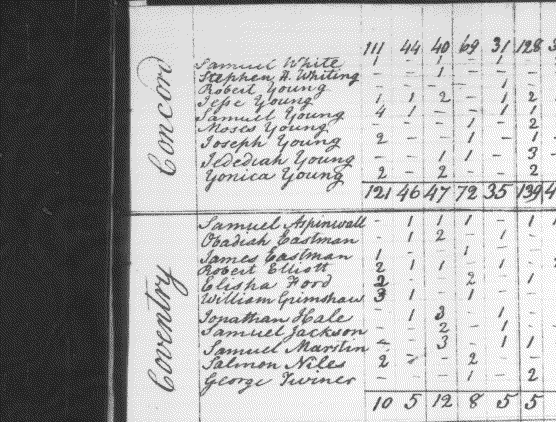 Concord
111 44 40 69 31 128
Samuel White 1 - 1 - 1 -
Stephen A. Whiting - - 1 - - -
Robert Young - - - - 1 -
Jesse Young 1 1 2 - 1 2
Samuel Young 4 1 - - 1 1
Moses Young - - - 1 - 2
Joseph Young 2 - - 1 - 1
Jedediah Young - - 1 1 - 3
Yonica Young 2 - 2 - - 2
121 46 47 72 35 139 4
Coventry
Samuel Aspinwall - 1 1 1 - 1 1
Obadiah Eastman - 1 2 - 1 -
James Eastman 1 - - 1 - -
Robert Elliott 2 1 1 - 1 -
Elisha Ford 2 - - 2 - 1
William Grimshaw 3 1 - 1 - -
Jonathan Hale - 1 3 - 1 -
Samuel Jackson - - 2 - 1 -
Samuel Marstin - - 3 - 1 1
Salmon Niles 2 - - 2 - -
George Twiner - - - 1 - 2
10 5 12 8 5 5